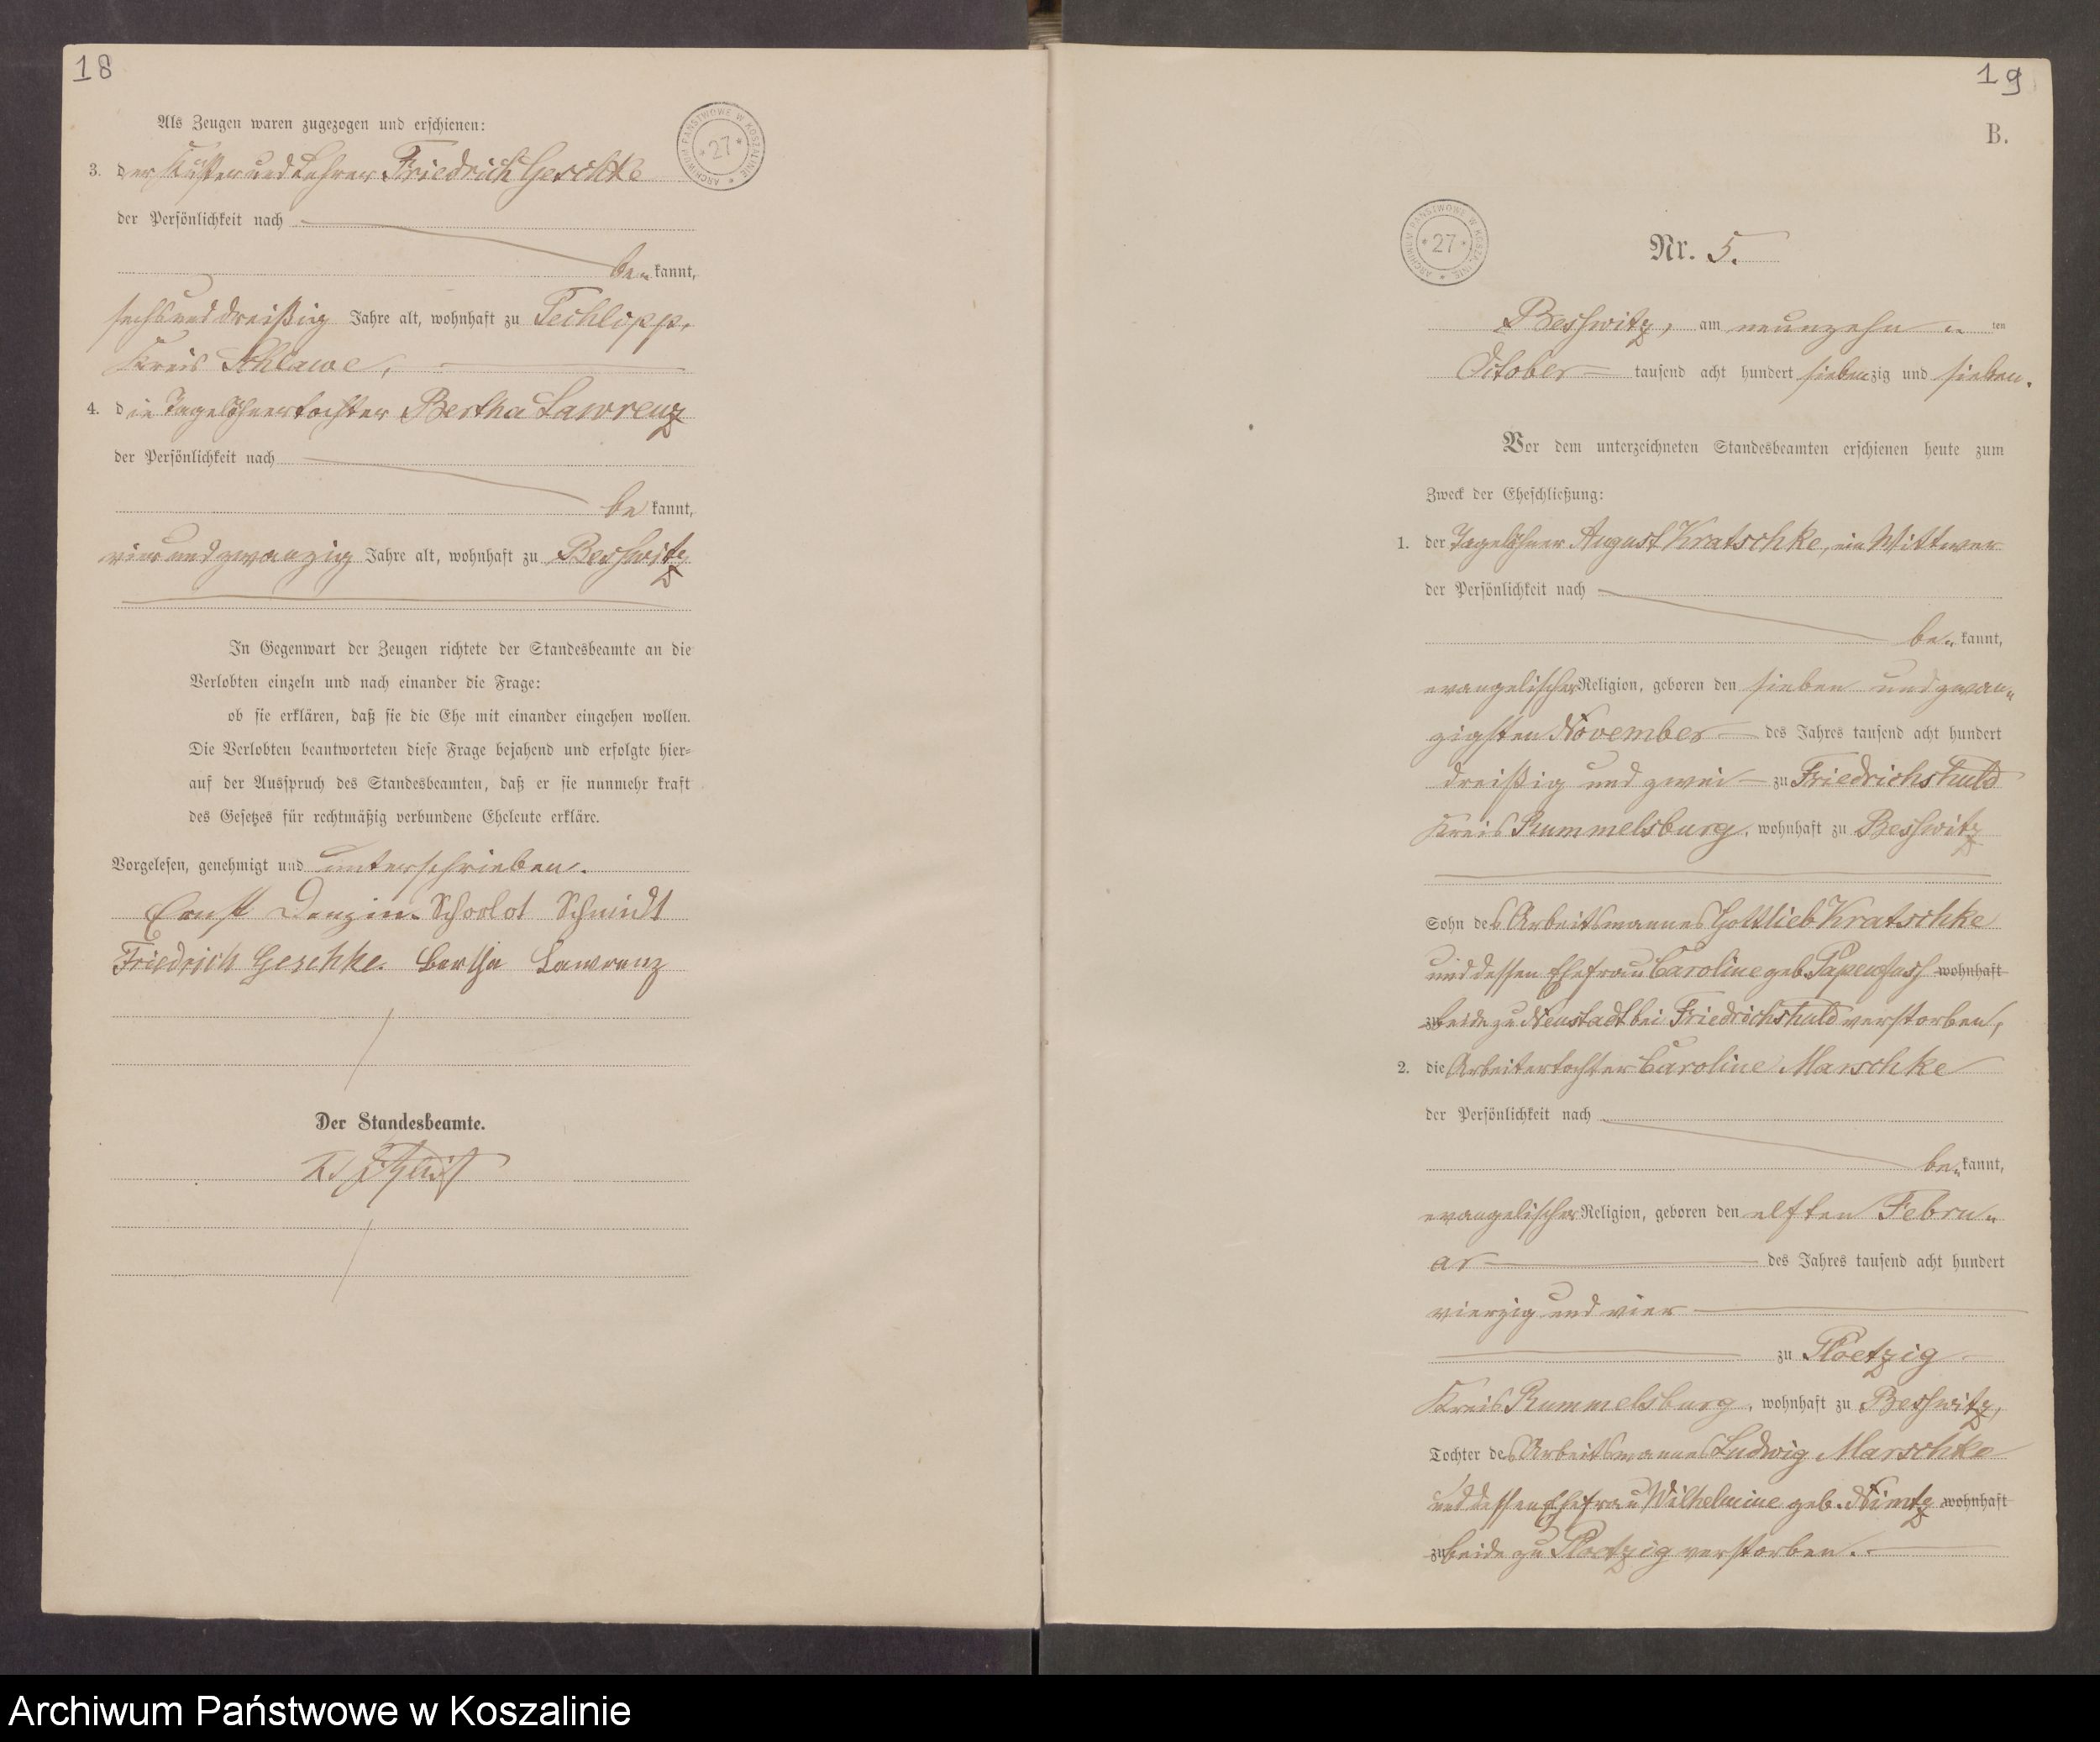 18
Als Zeugen waren zugezogen und erschienen:
3. der Küster und Lehrer Friedrich Geschke
der Persönlichkeit nach
be„ kannt,
sechs und dreißig Jahre alt, wohnhaft zu Techlipp,
Kreis Schlawe,
4. die Tagelöhnertochter Bertha Lawrenz
der Persönlichkeit nach
be kannt,
vier und zwanzig Jahre alt, wohnhaft zu Besswitz
In Gegenwart der Zeugen richtete der Standesbeamte an die
Verlobten einzeln und nach einander die Frage:
ob sie erklären, daß sie die Ehe mit einander eingehen wollen.
Die Verlobten beantworteten diese Frage bejahend und erfolgte hier-
auf der Ausspruch des Standesbeamten, daß er sie nunmehr kraft
des Gesetzes für rechtmäßig verbundene Eheleute erkläre.
Vorgelesen, genehmigt und unterschrieben.
Ernst Denzin. Schmidt
Friedrich Geschke. Bertha Lawrenz
Der Standesbeamte.
ARCHIWUM PAŃSTWOWE W KOSZALINIE
27
19
B.
ARCHIWUM PAŃSTWOWE W KOSZALINIE
27
Nr. 5.
Besswitz, am neunzehn „ ten
October tausend acht hundert siebenzig und sieben.
Vor dem unterzeichneten Standesbeamten erschienen heute zum
Zweck der Eheschließung:
1. der Tagelöhner August Kratschke, ein Wittwer
der Persönlichkeit nach
be„ kannt,
evangelischer Religion, geboren den sieben und zwan„
zigsten November des Jahres tausend acht hundert
dreißig und zwei zu Friedrichshuld
Kreis Rummelsburg, wohnhaft zu Besswitz
Sohn des Arbeitsmannes Gottlieb Kratschke
und dessen Ehefrau Caroline geb. Papenfuss wohnhaft
zu beide zu Neustadt bei Friedrichshuld verstorben,
2. die Arbeitertochter Caroline Marschke
der Persönlichkeit nach
be„ kannt,
evangelischer Religion, geboren den elften Febru„
ar des Jahres tausend acht hundert
vierzig und vier
zu Ploetzig
Kreis Rummelsburg, wohnhaft zu Besswitz,
Tochter des Arbeitsmannes Ludwig Marschke
und dessen Ehefrau Wilhelmine geb. Nimtz wohnhaft
zu beide zu Ploetzig verstorben.
Archiwum Państwowe w Koszalinie